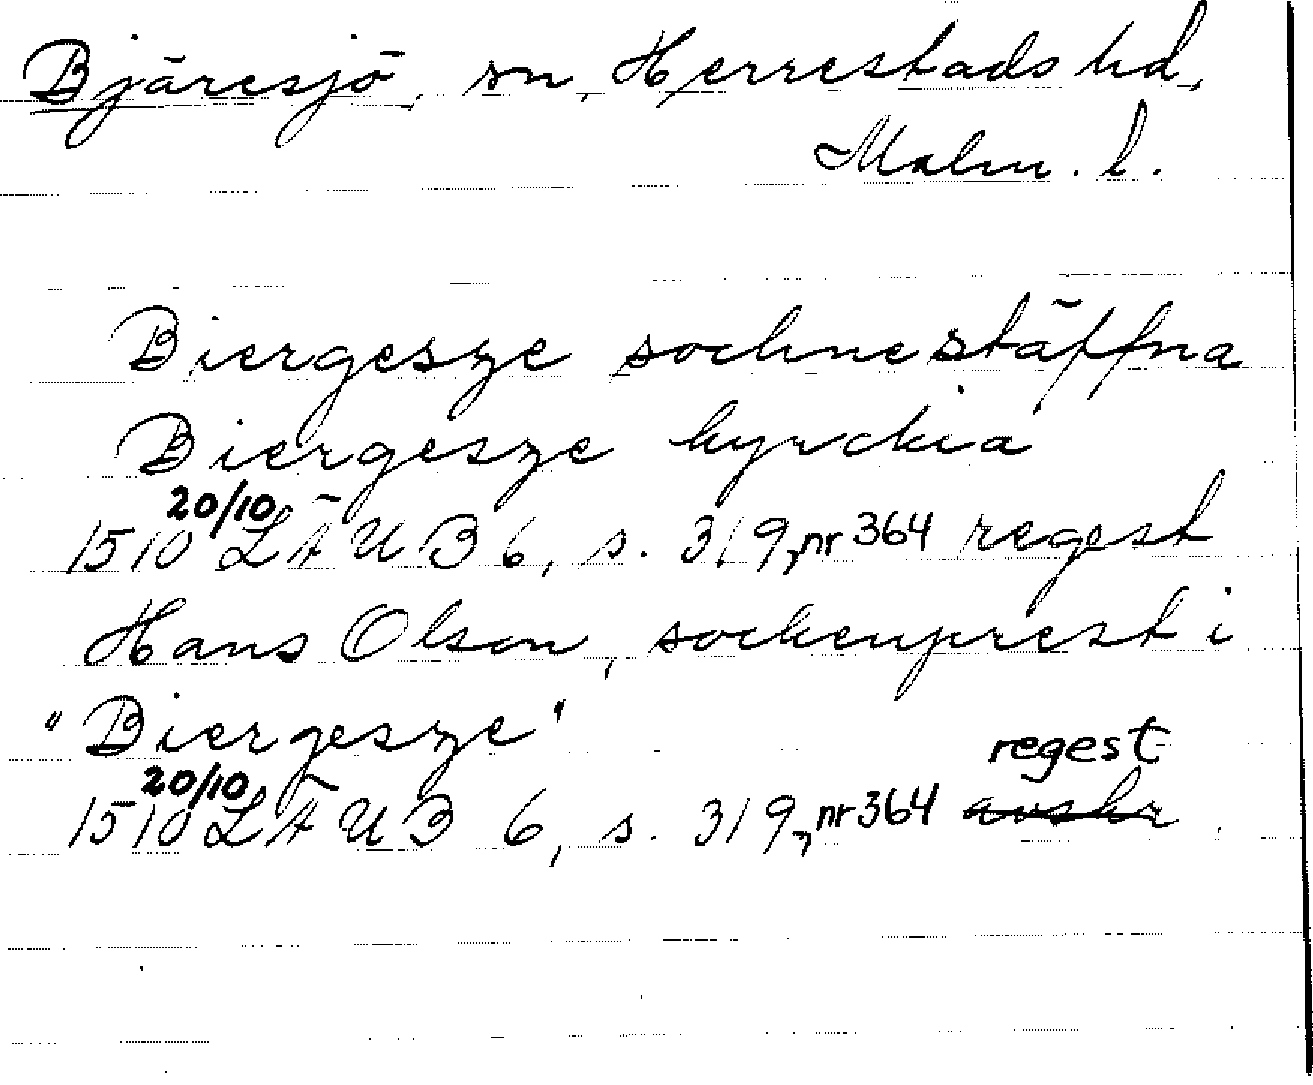 Bjäresjö, sn, Herrestads hd,
Malm. l.
Biergesze sochnestäffna
Biergesze kyrckia
1510 20/10 LÄUB 6, s. 319, nr 364 regest
Hans Olson, sockenprest i
"Biergesze"
1510 20/10 LÄUB 6, s. 319, nr 364 avskr regest